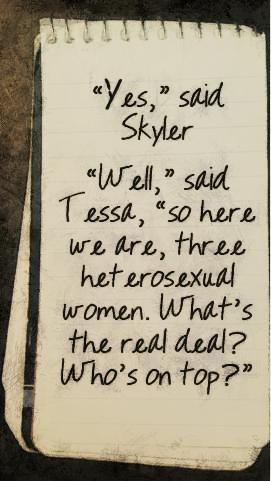 “Yes,” said
Skyler
“Well,” said
Tessa, “so here
we are, three
heterosexual
women. What’s
the real deal?
Who’s on top?”